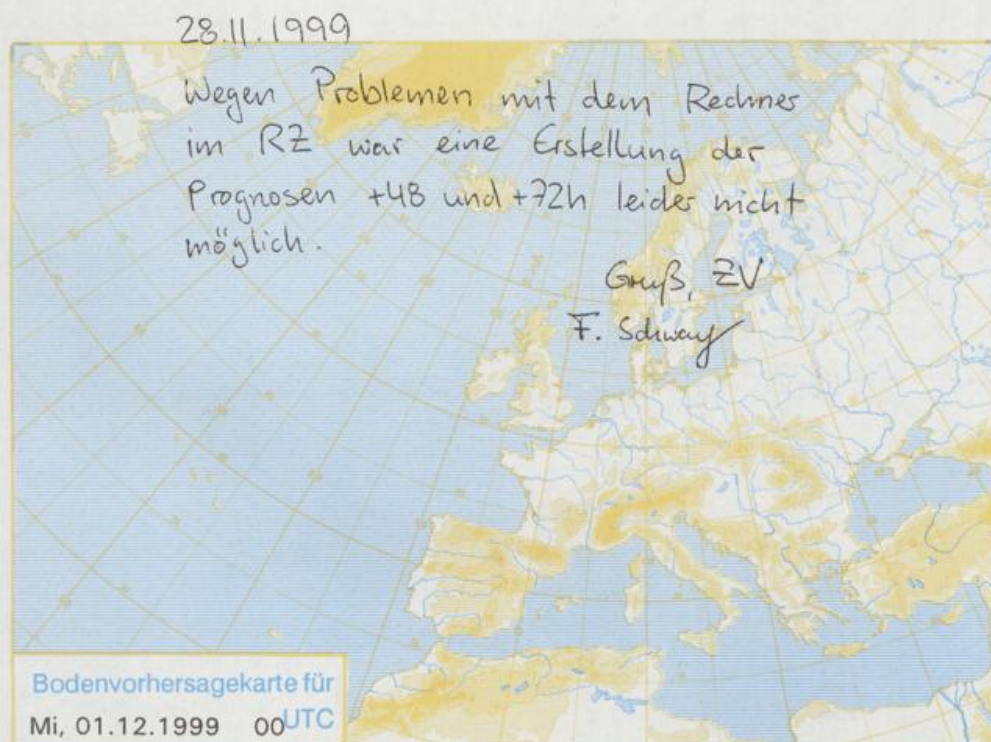 28.11.1999
Wegen Problemen mit dem Rechner
im RZ war eine Erstellung der
Prognosen +48 und +72h leider nicht
möglich.
Gruß, ZV
F.
Bodenvorhersagekarte für
Mi, 01.12.1999 00 UTC